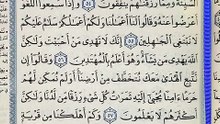 ٱلسَّيِّئَةَ وَمِمَّا رَزَقْنَٰهُمْ يُنفِقُونَ ٥٤ وَإِذَا سَمِعُوا۟ ٱللَّغْوَ
أَعْرَضُوا۟ عَنْهُ وَقَالُوا۟ لَنَآ أَعْمَٰلُنَا وَلَكُمْ أَعْمَٰلُكُمْ سَلَٰمٌ عَلَيْكُمْ
لَا نَبْتَغِى ٱلْجَٰهِلِينَ ٥٥ إِنَّكَ لَا تَهْدِى مَنْ أَحْبَبْتَ وَلَٰكِنَّ
ٱللَّهَ يَهْدِى مَن يَشَآءُ وَهُوَ أَعْلَمُ بِٱلْمُهْتَدِينَ ٥٦ وَقَالُوٓا۟ إِن
نَّتَّبِعِ ٱلْهُدَىٰ مَعَكَ نُتَخَطَّفْ مِنْ أَرْضِنَآ أَوَلَمْ نُمَكِّن لَّهُمْ
حَرَمًا ءَامِنًا يُجْبَىٰٓ إِلَيْهِ ثَمَرَٰتُ كُلِّ شَىْءٍ رِّزْقًا مِّن لَّدُنَّا وَلَٰكِنَّ
أَكْثَرَهُمْ لَا يَعْلَمُونَ ٥٧ وَكَمْ أَهْلَكْنَا مِن